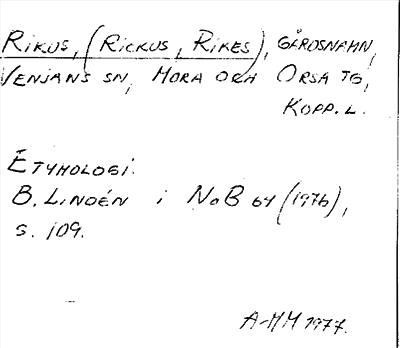 RIKUS, (RICKUS, RIKES), GÅRDSNAMN,
VENJANS SN, MORA OCH ORSA TG,
KOPP. L.
ETYMOLOGI:
B. LINDÉN i NoB 64 (1976),
s. 109.
A-MM 1977.